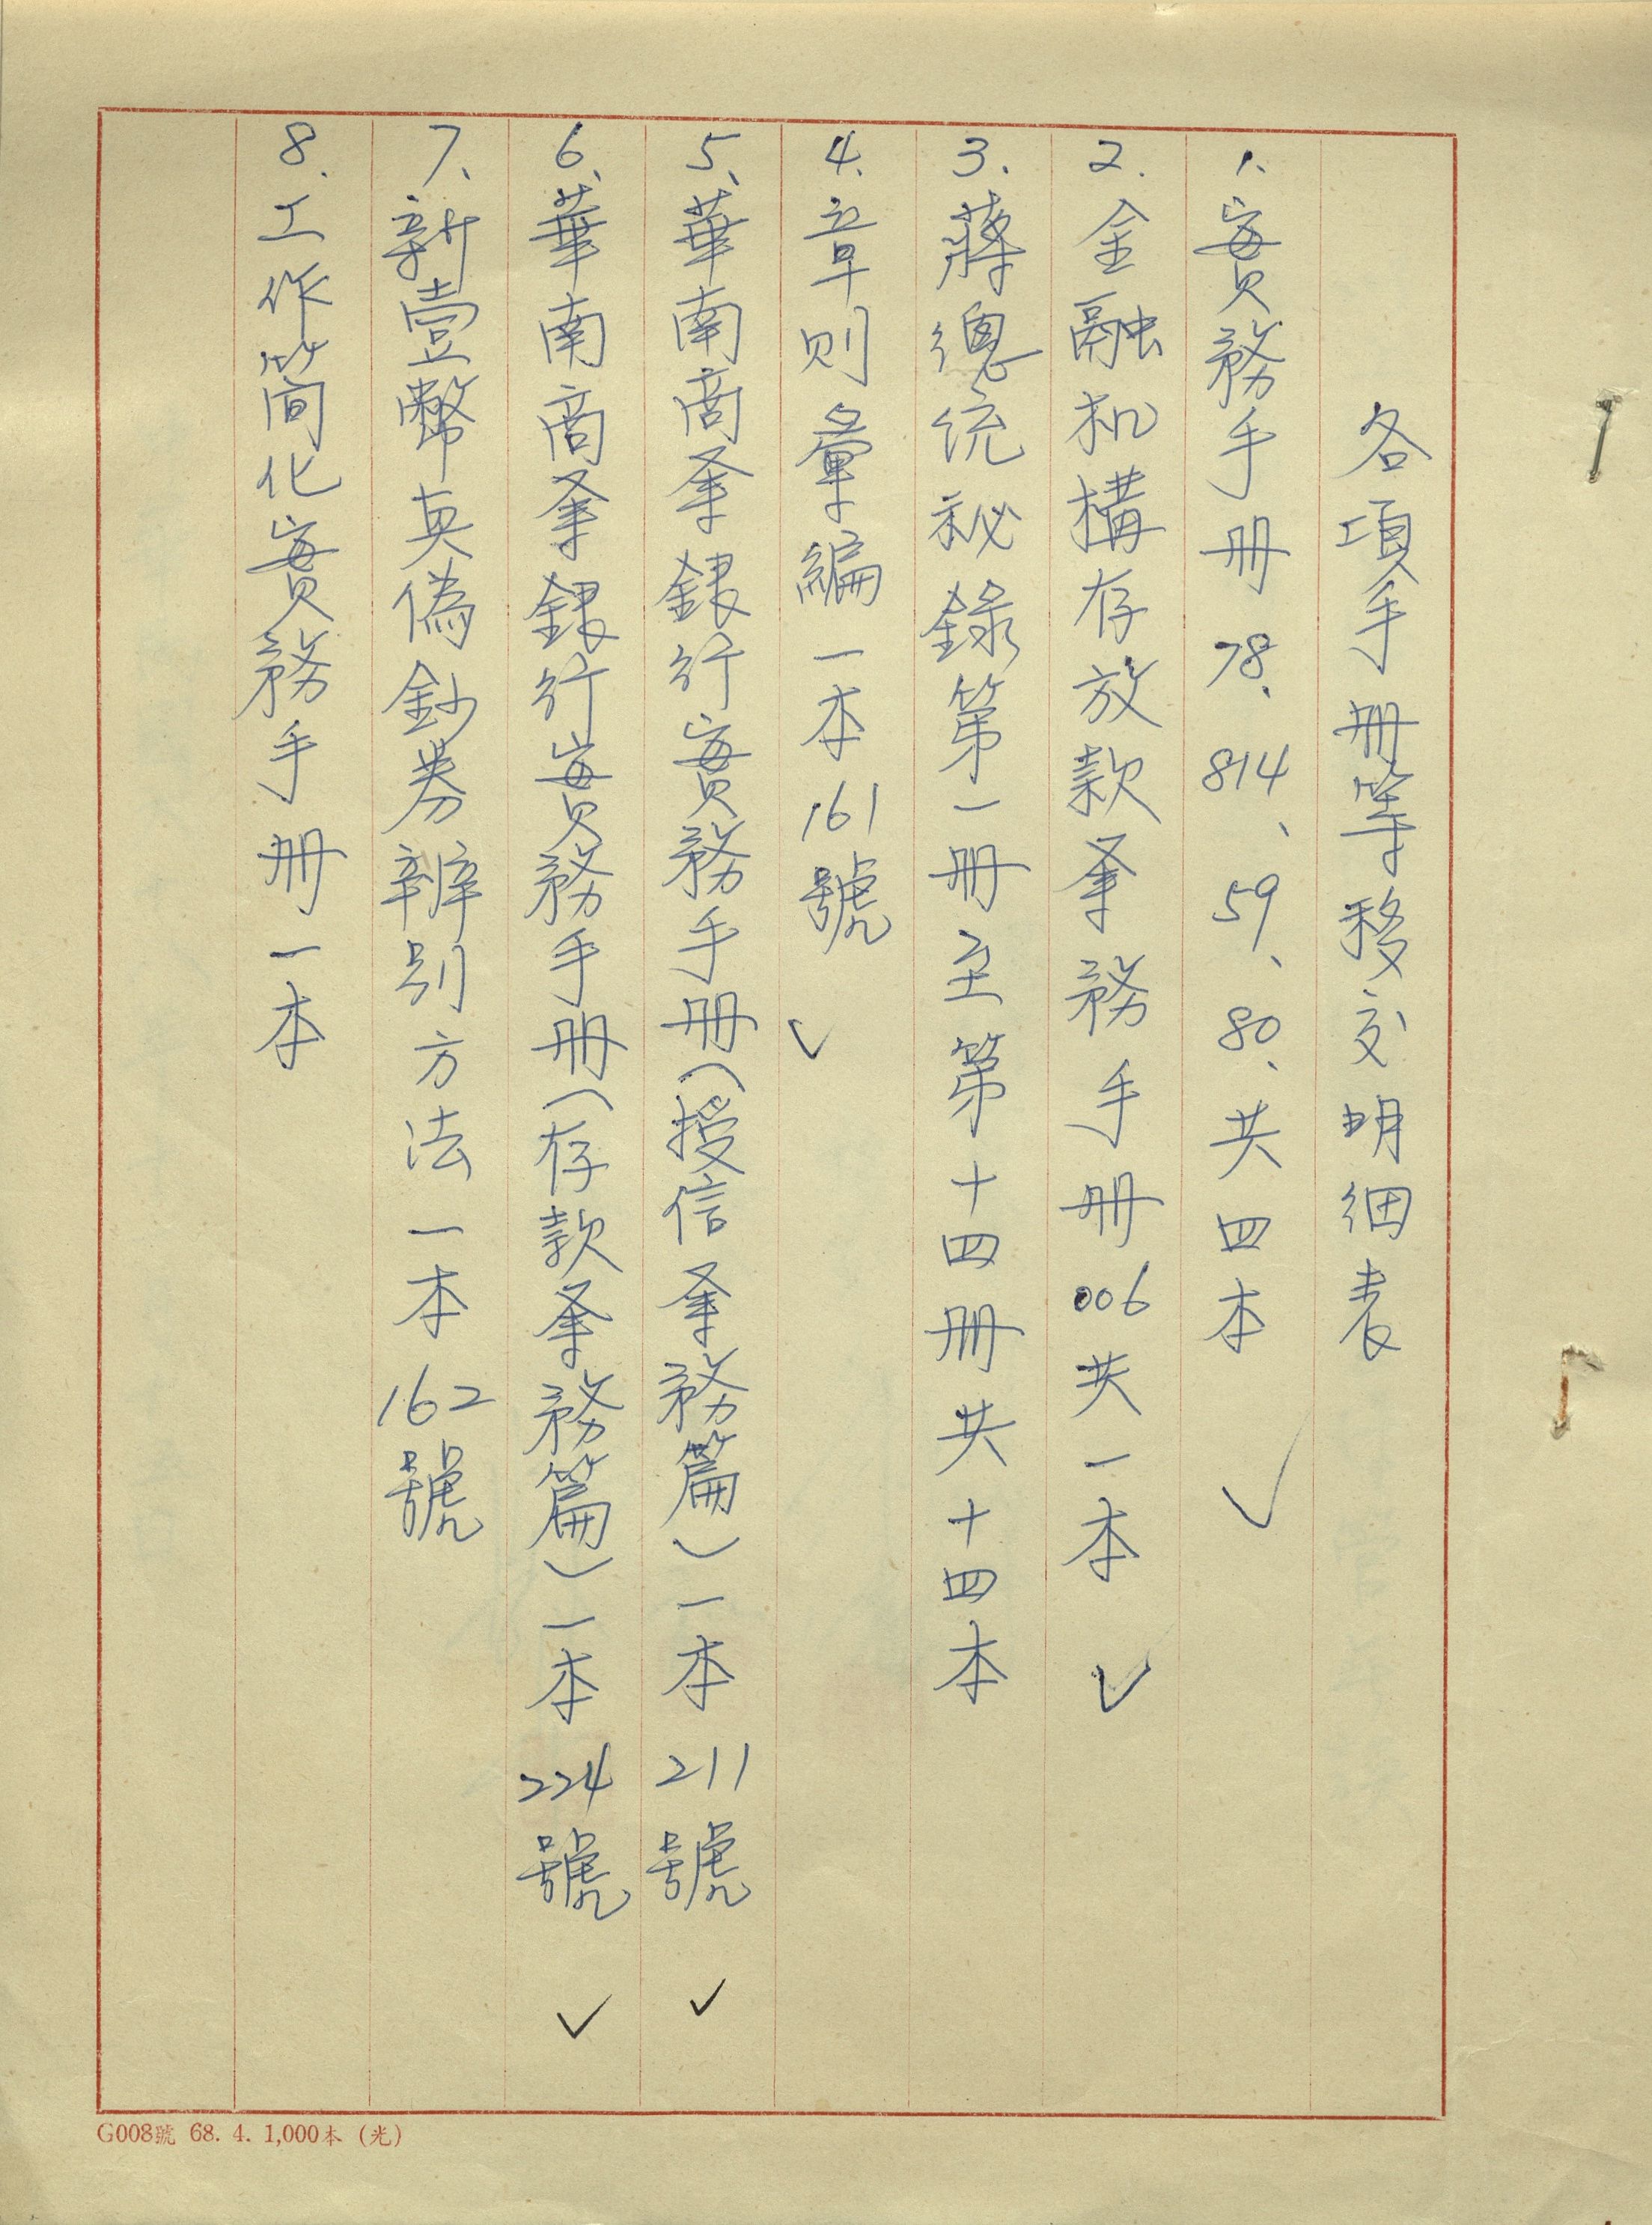 各項手册等移交明細表
1.實務手册78、814、59、80、共四本 ✓
2.金融机構存放款業務手册006共一本 ✓
3.蔣總統秘錄第一册至第十四册共十四本
4.章則彙編一本161號 ✓
5、華南商業銀行實務手册(授信業務篇)一本211號 ✓
6、華南商業銀行實務手册(存款業務篇)一本224號 ✓
7、新臺幣真偽鈔券辨別方法一本162號
8.工作簡化實務手册一本
G008號 68. 4. 1,000本 (光)